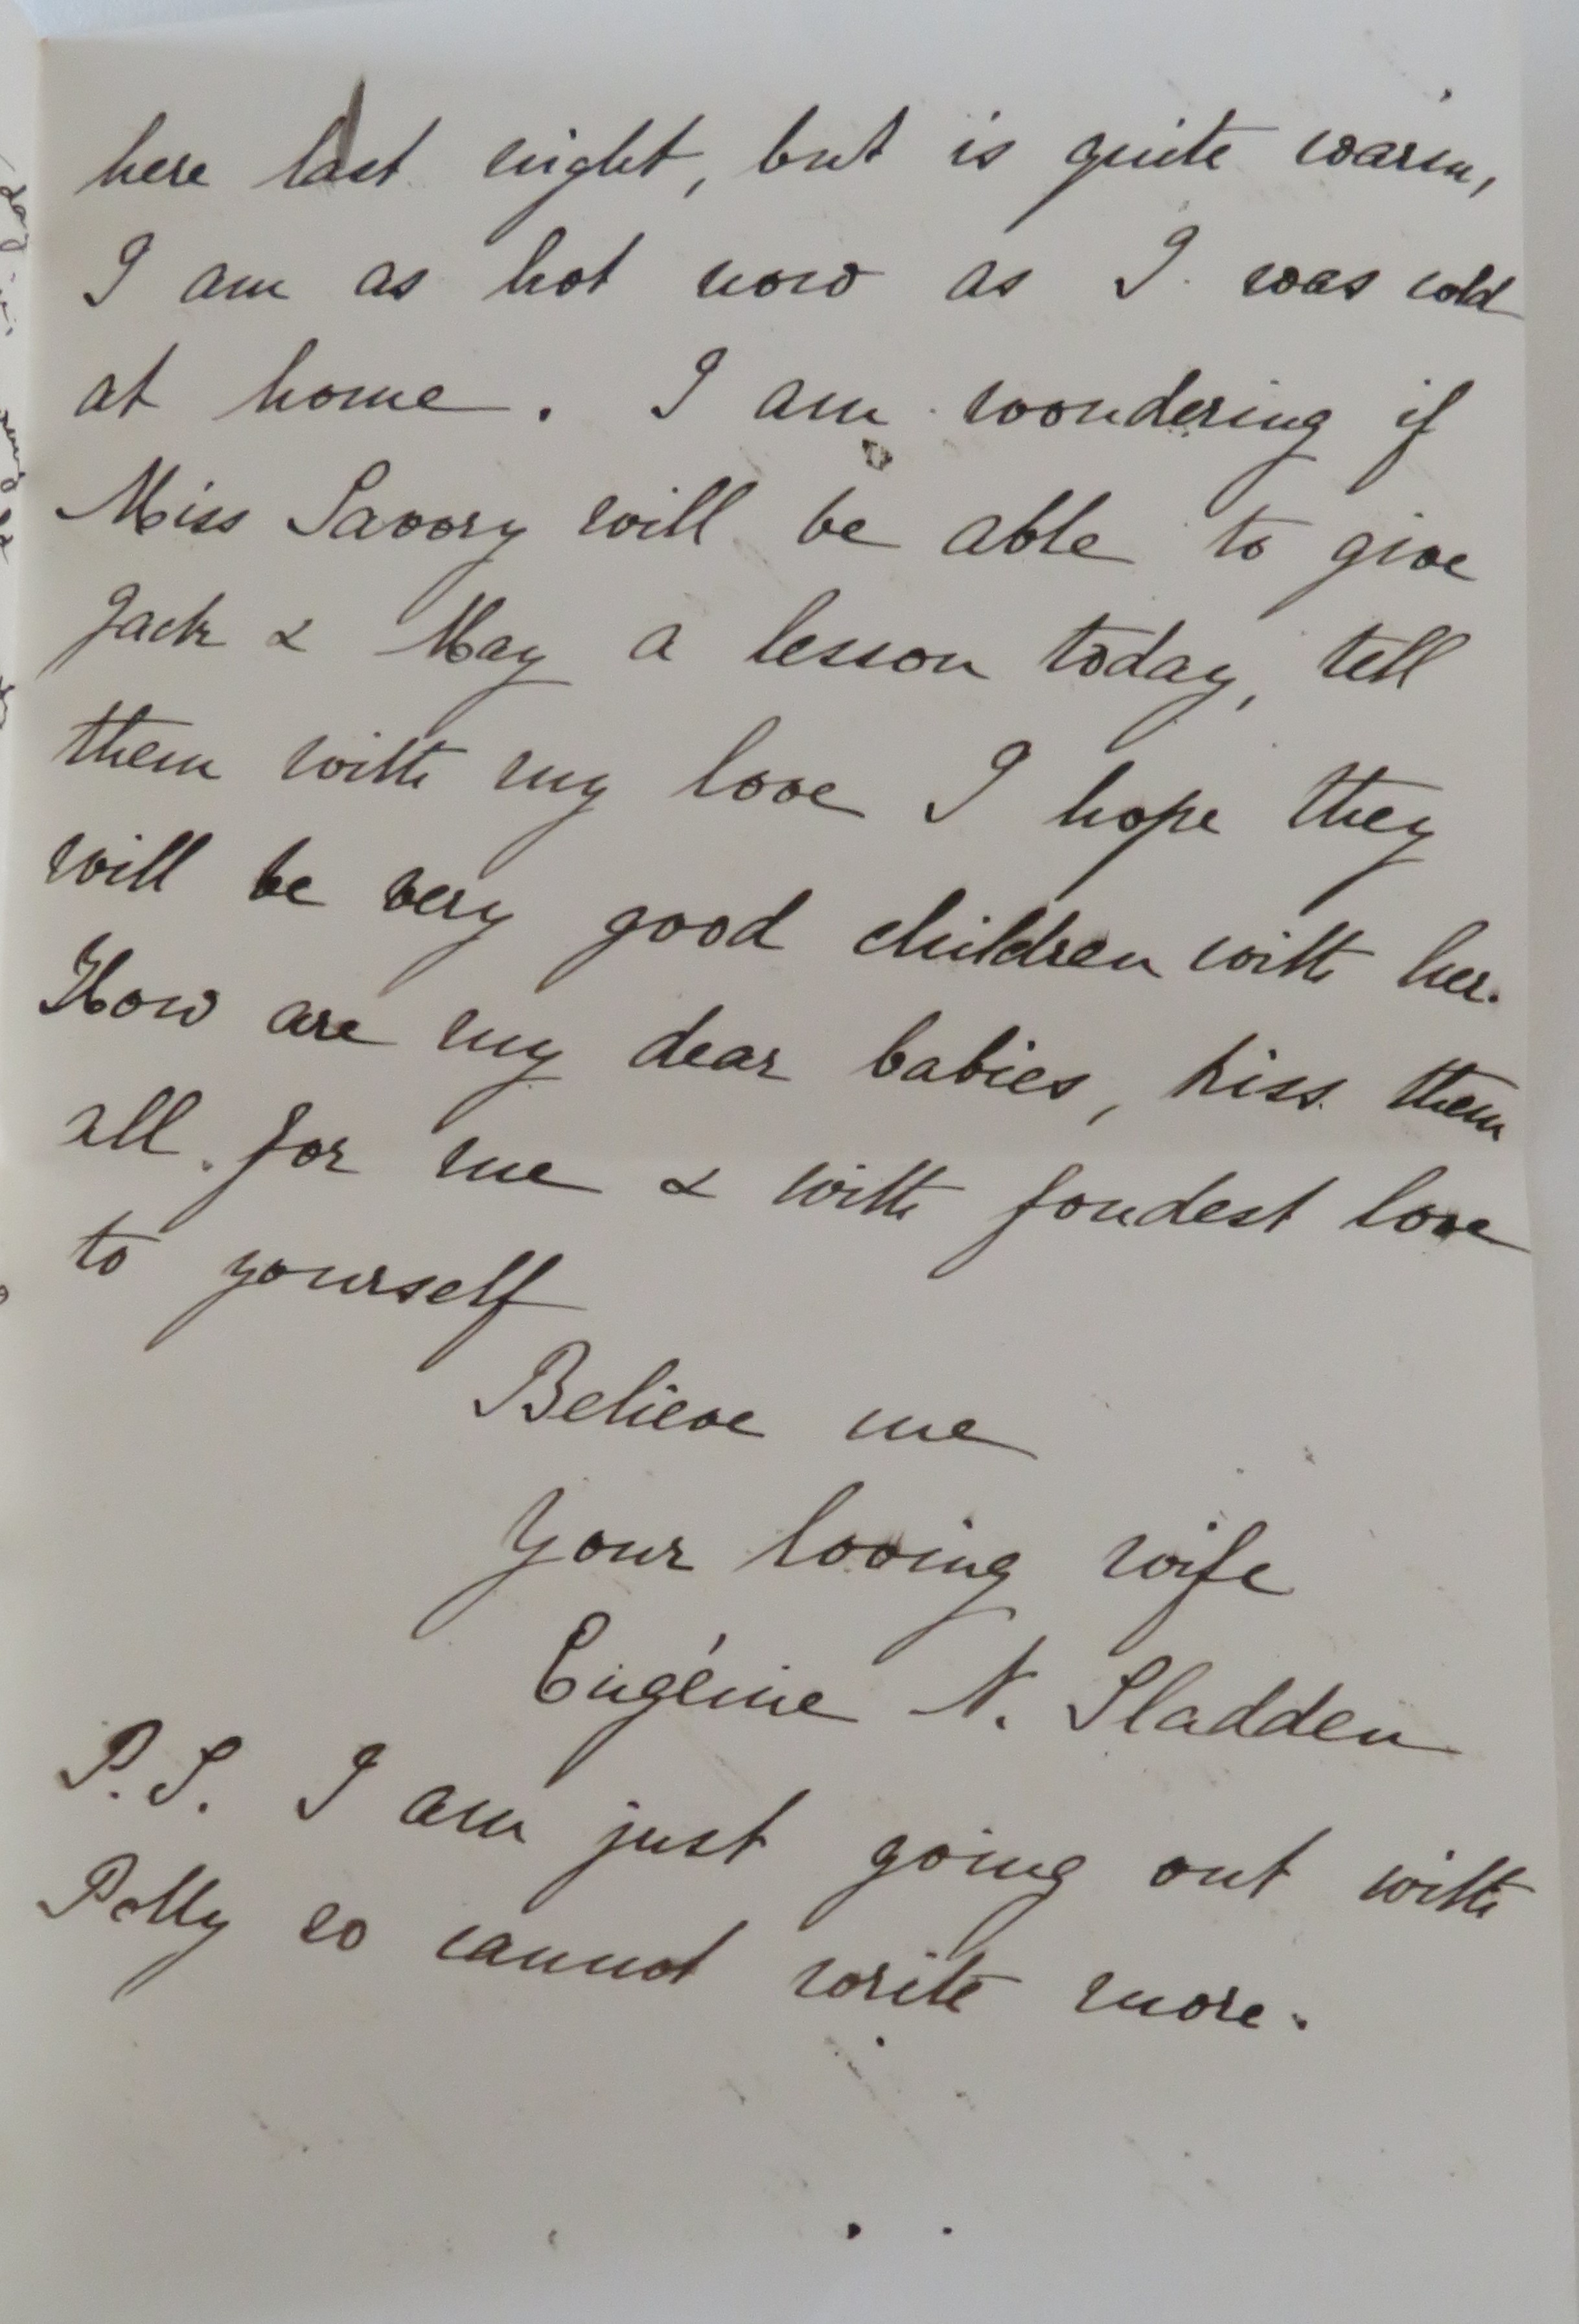 here last night, but is quite warm,
I am as hot now as I was cold
at home. I am wondering if
Miss Savory will be able to give
Jack & May a lesson today, tell
them with my love I hope they
will be very good children with her.
How are my dear babies, kiss them
all for me & with fondest love
to yourself
Believe me
Your loving wife
Eugénie N. Sladden
P.S. I am just going out with
Polly so cannot write more.